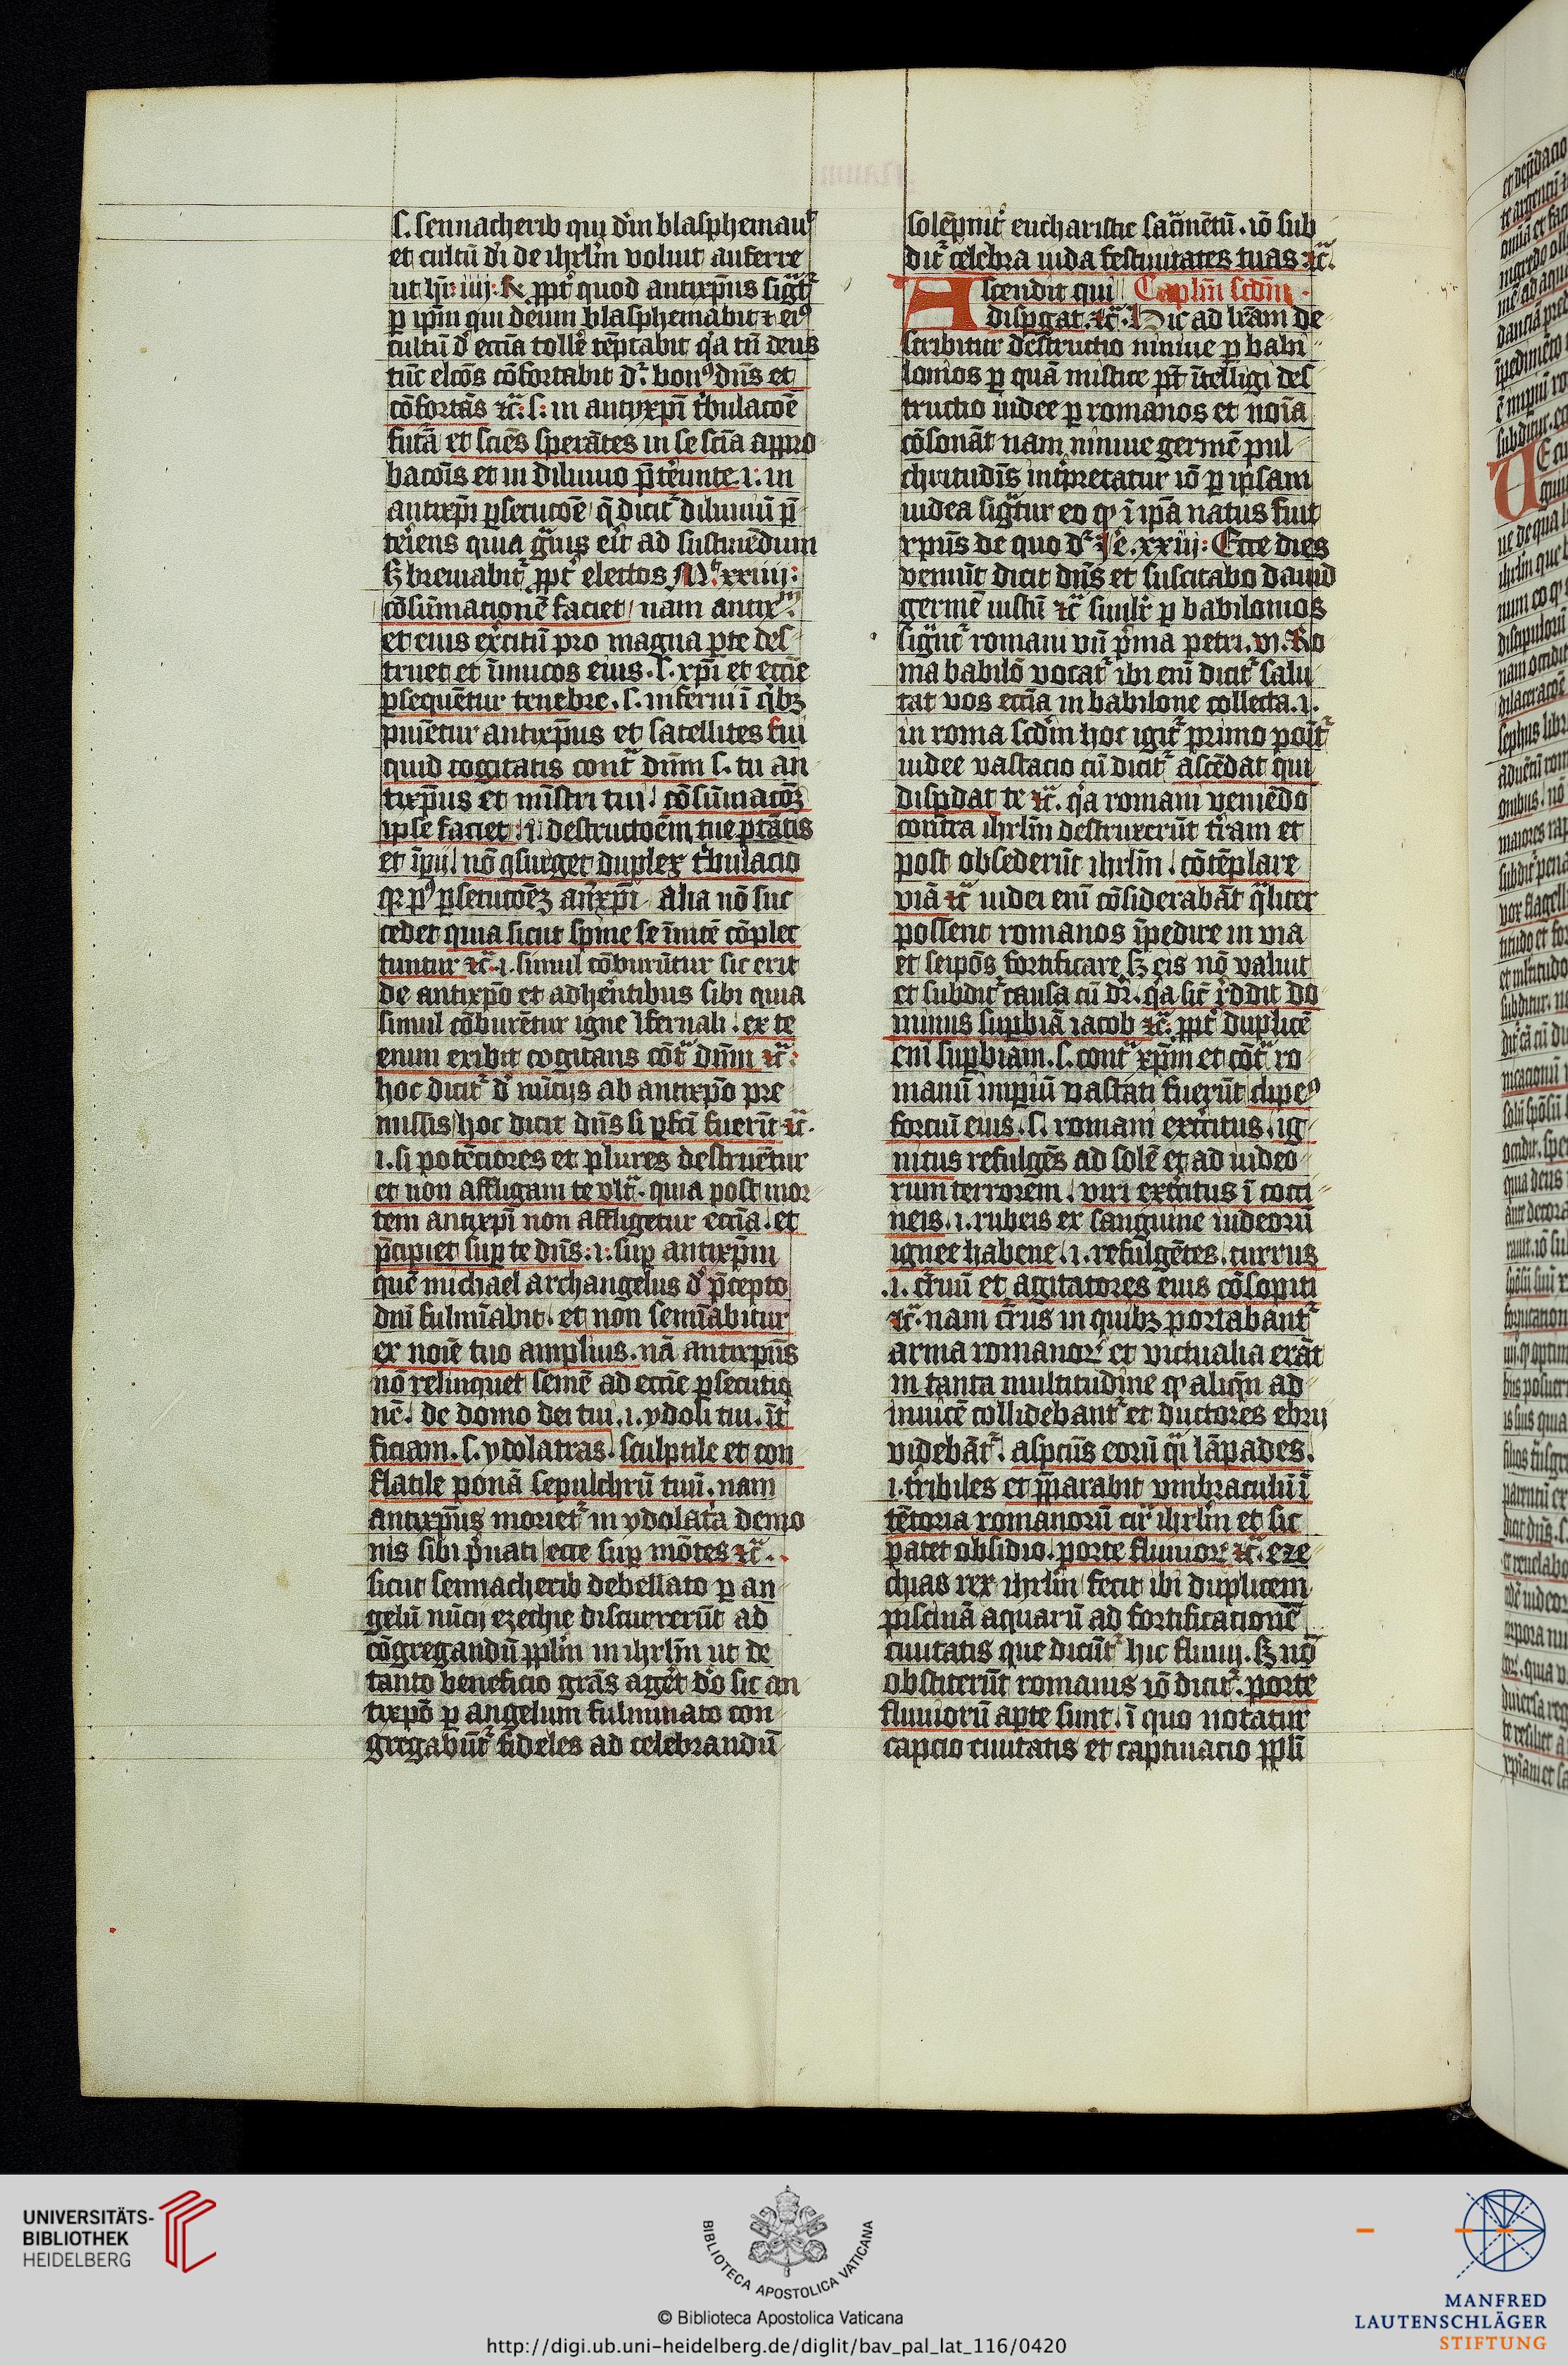 s. sennacherib qui dm̄ blasphemauͭ
et cultū dī de ihrlm̄ voluit auferre
ut hr̄ iiij. ꝓpt̄ quod antixp̄us sigͣtͬ
ꝑ ipm̄ qui deum blasphemabit ⁊ eiꝰ
cultū d̄ ecc̄ia tolle tēptabit qͥa tn̄ deus
tūc elc̄os cōfortabit dͬ. bonꝰ dn̄s et
cōfortās ⁊cͣ. s. in antixp̄i tͥbulacoē
futā et sciēs sperātes in se sc̄ia appro
bacōis et in diluuio p̄tēunte .i. in
antixp̄i ꝑsecucoē q̄ dicitͬ diluuiū p̄
teriens quia gͣuis erit ad sustinēdum
sꝫ breuiabitͬ ꝓpt̄ electos Mͭ. xxiiij.
cōsūmationē faciet nam antix
et eius exc̄itū pro magna ꝑte des
truet et īimicos eius .s. xp̄i et ecc̄ie
ꝑsequētur tenebre .s. inferni ī qͥbꝫ
puniētur antixp̄us et satellites sui
quid cogitatis contͣ dn̄m s. tu an
tixp̄us et mīstri tui cōsūmacōꝫ
ipse faciet .i. destructoēm tue ptātis
et īpij nō ꝯsurget duplex tͥbulacio
qꝛ pꝰ ꝑsecucoēꝫ an̄xp̄i alia nō suc
cedet quia sicut spine se īuicē cōplec
tuntur ⁊cͣ .i. simul cōburūtur sic erit
de antixp̄o et adherētibus sibi quia
simul cōburētur igne īfernali . ex te
enim exibit cogitans cōtͣ dn̄m ⁊cͣ.
hoc dicitͬ d̄ nūcijs ab antixp̄o pre
missis hoc dicit dn̄s si ꝑfc̄i fuerīt ⁊cͣ.
.i. si potēciores et plures destruētur
et non affligam te vltͣ. quia post mor
tem antixp̄i non affligetur ecc̄ia . et
p̄cipiet suꝑ te dn̄s .i. suꝑ antixp̄m
quē michael archangelus d̄ p̄cepto
dn̄i fulmīabit . et non semīabitur
ex noīe tuo amplius . nā antixp̄us
nō relinquet semē ad ecc̄ie ꝑsecutio
nē. de domo dei tui .i. ydoli tui . īt̄
ficiam . s. ydolatras . sculptile et con
flatile ponā sepulchrū tuū . nam
antixp̄us morietͬ in ydolatͥa demo
nis sibi pͥuati ecce suꝑ mōtes ⁊cͣ.
sicut sennacherib debellato ꝑ an
gelū nūcij ezechie discurrerūt ad
cōgregandū ppl̄m in ihrlm̄ ut de
tanto beneficio grās aget̄ dō sic an
tixpō ꝑ angelum fulminato con
gregabūtͬ fideles ad celebrandū
solēpnit̄ eucharistie sacͣmētū . iō sub
ditͬ celebra iuda festiuitates tuas ⁊cͣ.
Caplm̄ scd̄m
Ascendit qui
dispgat . ⁊cͣ. Hic ad lrām de
scribitur destructio niniue ꝑ babi
lonios ꝑ quā mistice pt̄ ītelligi des
tructio iudee ꝑ romanos et noīa
cōsonāt nam niniue germē pul
chritudīs int̄pretatur iō ꝑ ipsam
iudea sigͣtur eo qꝫ ī ipā natus fuit
xp̄us de quo dͬ Je. xxiij. Ecce dies
veniūt dicit dn̄s et suscitabo dauid
germē iustū ⁊cͣ similͬ ꝑ babilonios
sigͣntͬ romani vn̄ pͥma petri . vi. Ro
ma babilō vocatͬ ibi eni dicitͬ salu
tat vos ecc̄ia in babilone collecta .i.
in roma scd̄m hoc igitͬ primo poītͬ
iudee vastacio cū dicitͬ ascēdat qui
dispdat te ⁊cͣ. qͥa romani veniēdo
contra ihrlm̄ destruxerūt t̄ram et
post obsederūt ihrlm̄ . cōtēplare
viā ⁊cͣ iudei eni cōsiderabāt qͣliter
possent romanos īpedire in via
et seipōs fortificare sꝫ eis nō valuit
et subditͬ causa cū dͬ. qͥa sic̄ rͤddit do
minus suꝑbiā iacob ⁊cͣ. ꝓpt̄ duplicē
eni suꝑbiam . s. contͣ xp̄m et cōtͣ ro
manū imꝑiū vastati fuerūt clipeꝰ
fortiū eius . s. romani exc̄itus . ig
nitus refulgēs ad solē et ad iudeo
rum terrorem . viri exc̄itus ī cocci
neis .i. rubeis ex sanguine iudeorū
ignee habene .i. refulgētes . currus
.i. cͬruū et agitatores eius cōsopiti
⁊cͣ. nam cͬrus in quibꝫ portabantͬ
arma romanoꝝ et victualia erāt
in tanta multitudine qꝫ aliqn̄ ad
inuicē collidebantͬ et ductores ebrij
videbātͬ . aspctūs eorū qͣi lāpades .
.i. tͬribiles et p̄parabit vmbraculū ī
tētoria romanorū circͣ ihrlm̄ et sic
patet obsidio . porte fluuioꝝ ⁊cͣ. eze
chias rex ihrlm̄ fecit ibi duplicem
piscinā aquarū ad fortificationē
ciuitatis que dicūtͬ hic fluuij . sꝫ nō
obstiterūt romanis iō dicitͬ . porte
fluuiorū apte sunt . ī quo notatur
capcio ciuitatis et captiuacio ppl̄i
UNIVERSITÄTS-
BIBLIOTHEK
HEIDELBERG
BIBLIOTECA APOSTOLICA VATICANA
© Biblioteca Apostolica Vaticana
http://digi.ub.uni-heidelberg.de/diglit/bav_pal_lat_116/0420
MANFRED
LAUTENSCHLÄGER
STIFTUNG